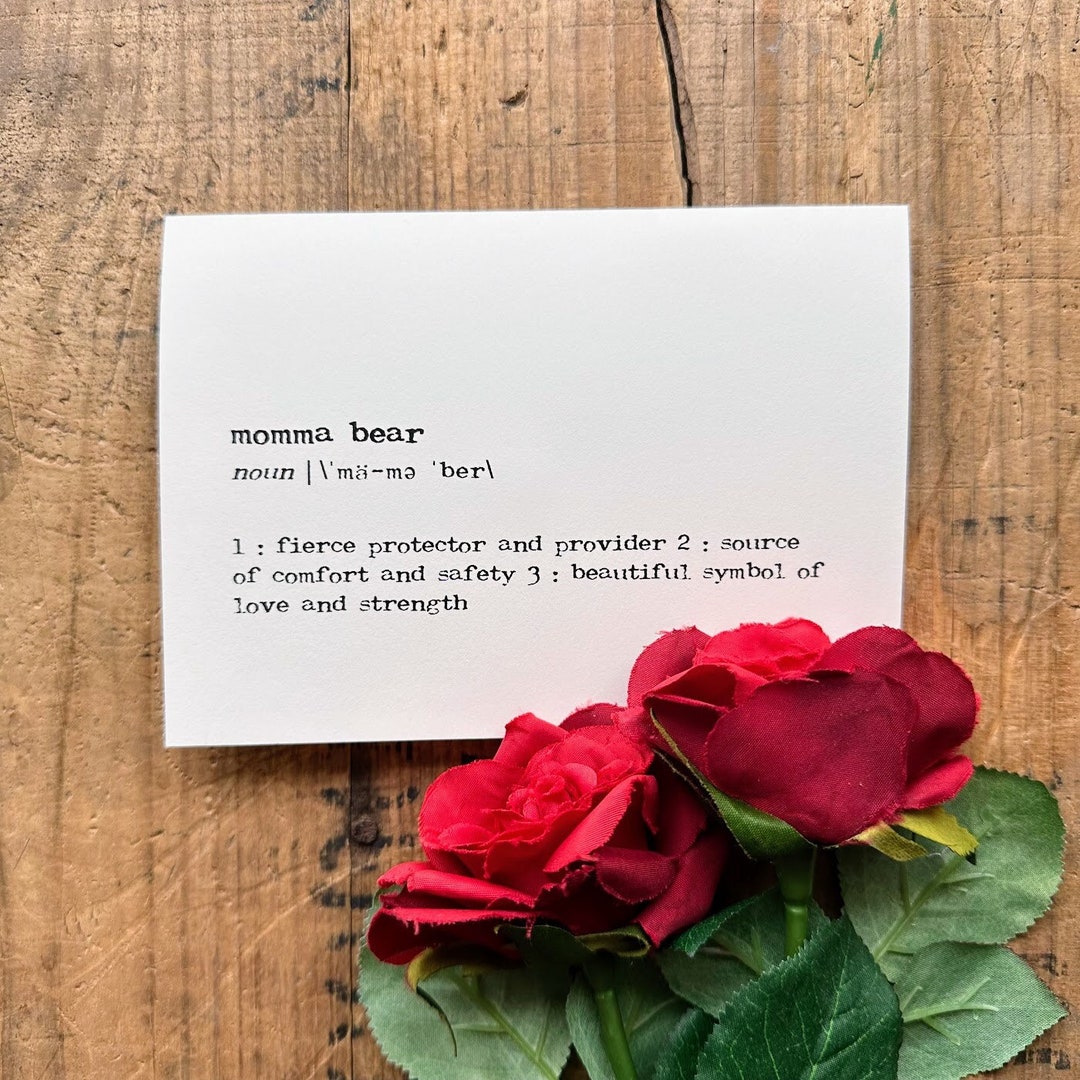 momma bear
noun | \ˈmä-mə ˈber\
1 : fierce protector and provider 2 : source
of comfort and safety 3 : beautiful symbol of
love and strength